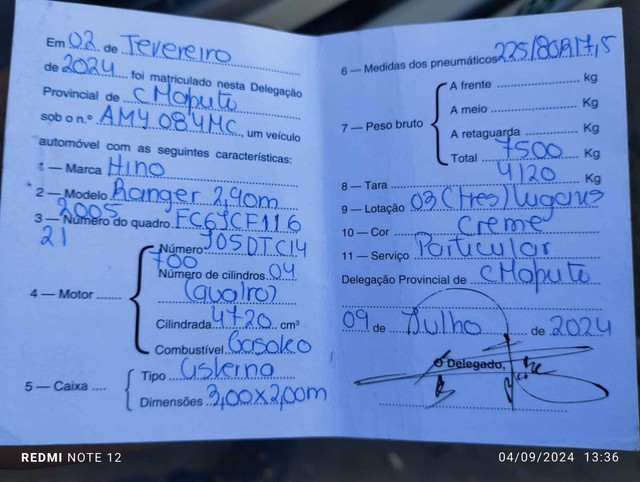 Em 02 de Fevereiro
de 2024 foi matriculado nesta Delegação
Provincial de Maputo
sob o n.º AMY 084MC, um veículo
automóvel com as seguintes características:
1 — Marca Hino
2 — Modelo Ranger 2,40m
2005
3 — Número do quadro FC6JCF116
21
4 — Motor
Número J05DTC14
700
Número de cilindros 04
(quatro)
Cilindrada 4720 cm³
Combustível Gasoleo
5 — Caixa
Tipo Cisterna
Dimensões 3,00x2,00m
6 — Medidas dos pneumáticos 225/80R17,5
7 — Peso bruto
A frente kg
A meio Kg
A retaguarda Kg
Total 7500 Kg
8 — Tara 4120 Kg
9 — Lotação 03 (três) lugares
10 — Cor Creme
11 — Serviço Particular
Delegação Provincial de Maputo
09 de Julho de 2024
O Delegado,
REDMI NOTE 12
04/09/2024 13:36